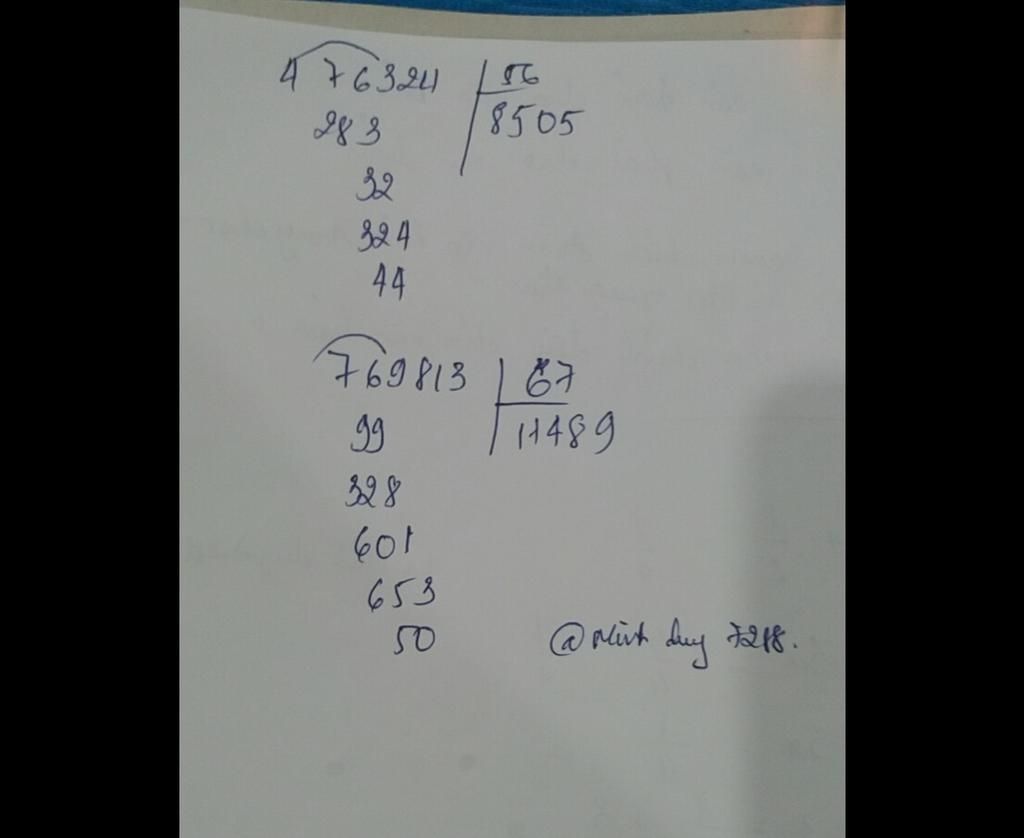 476324 56
283 8505
32
324
44
769813 67
99 11489
328
601
653
50
@Minh duy 7218.